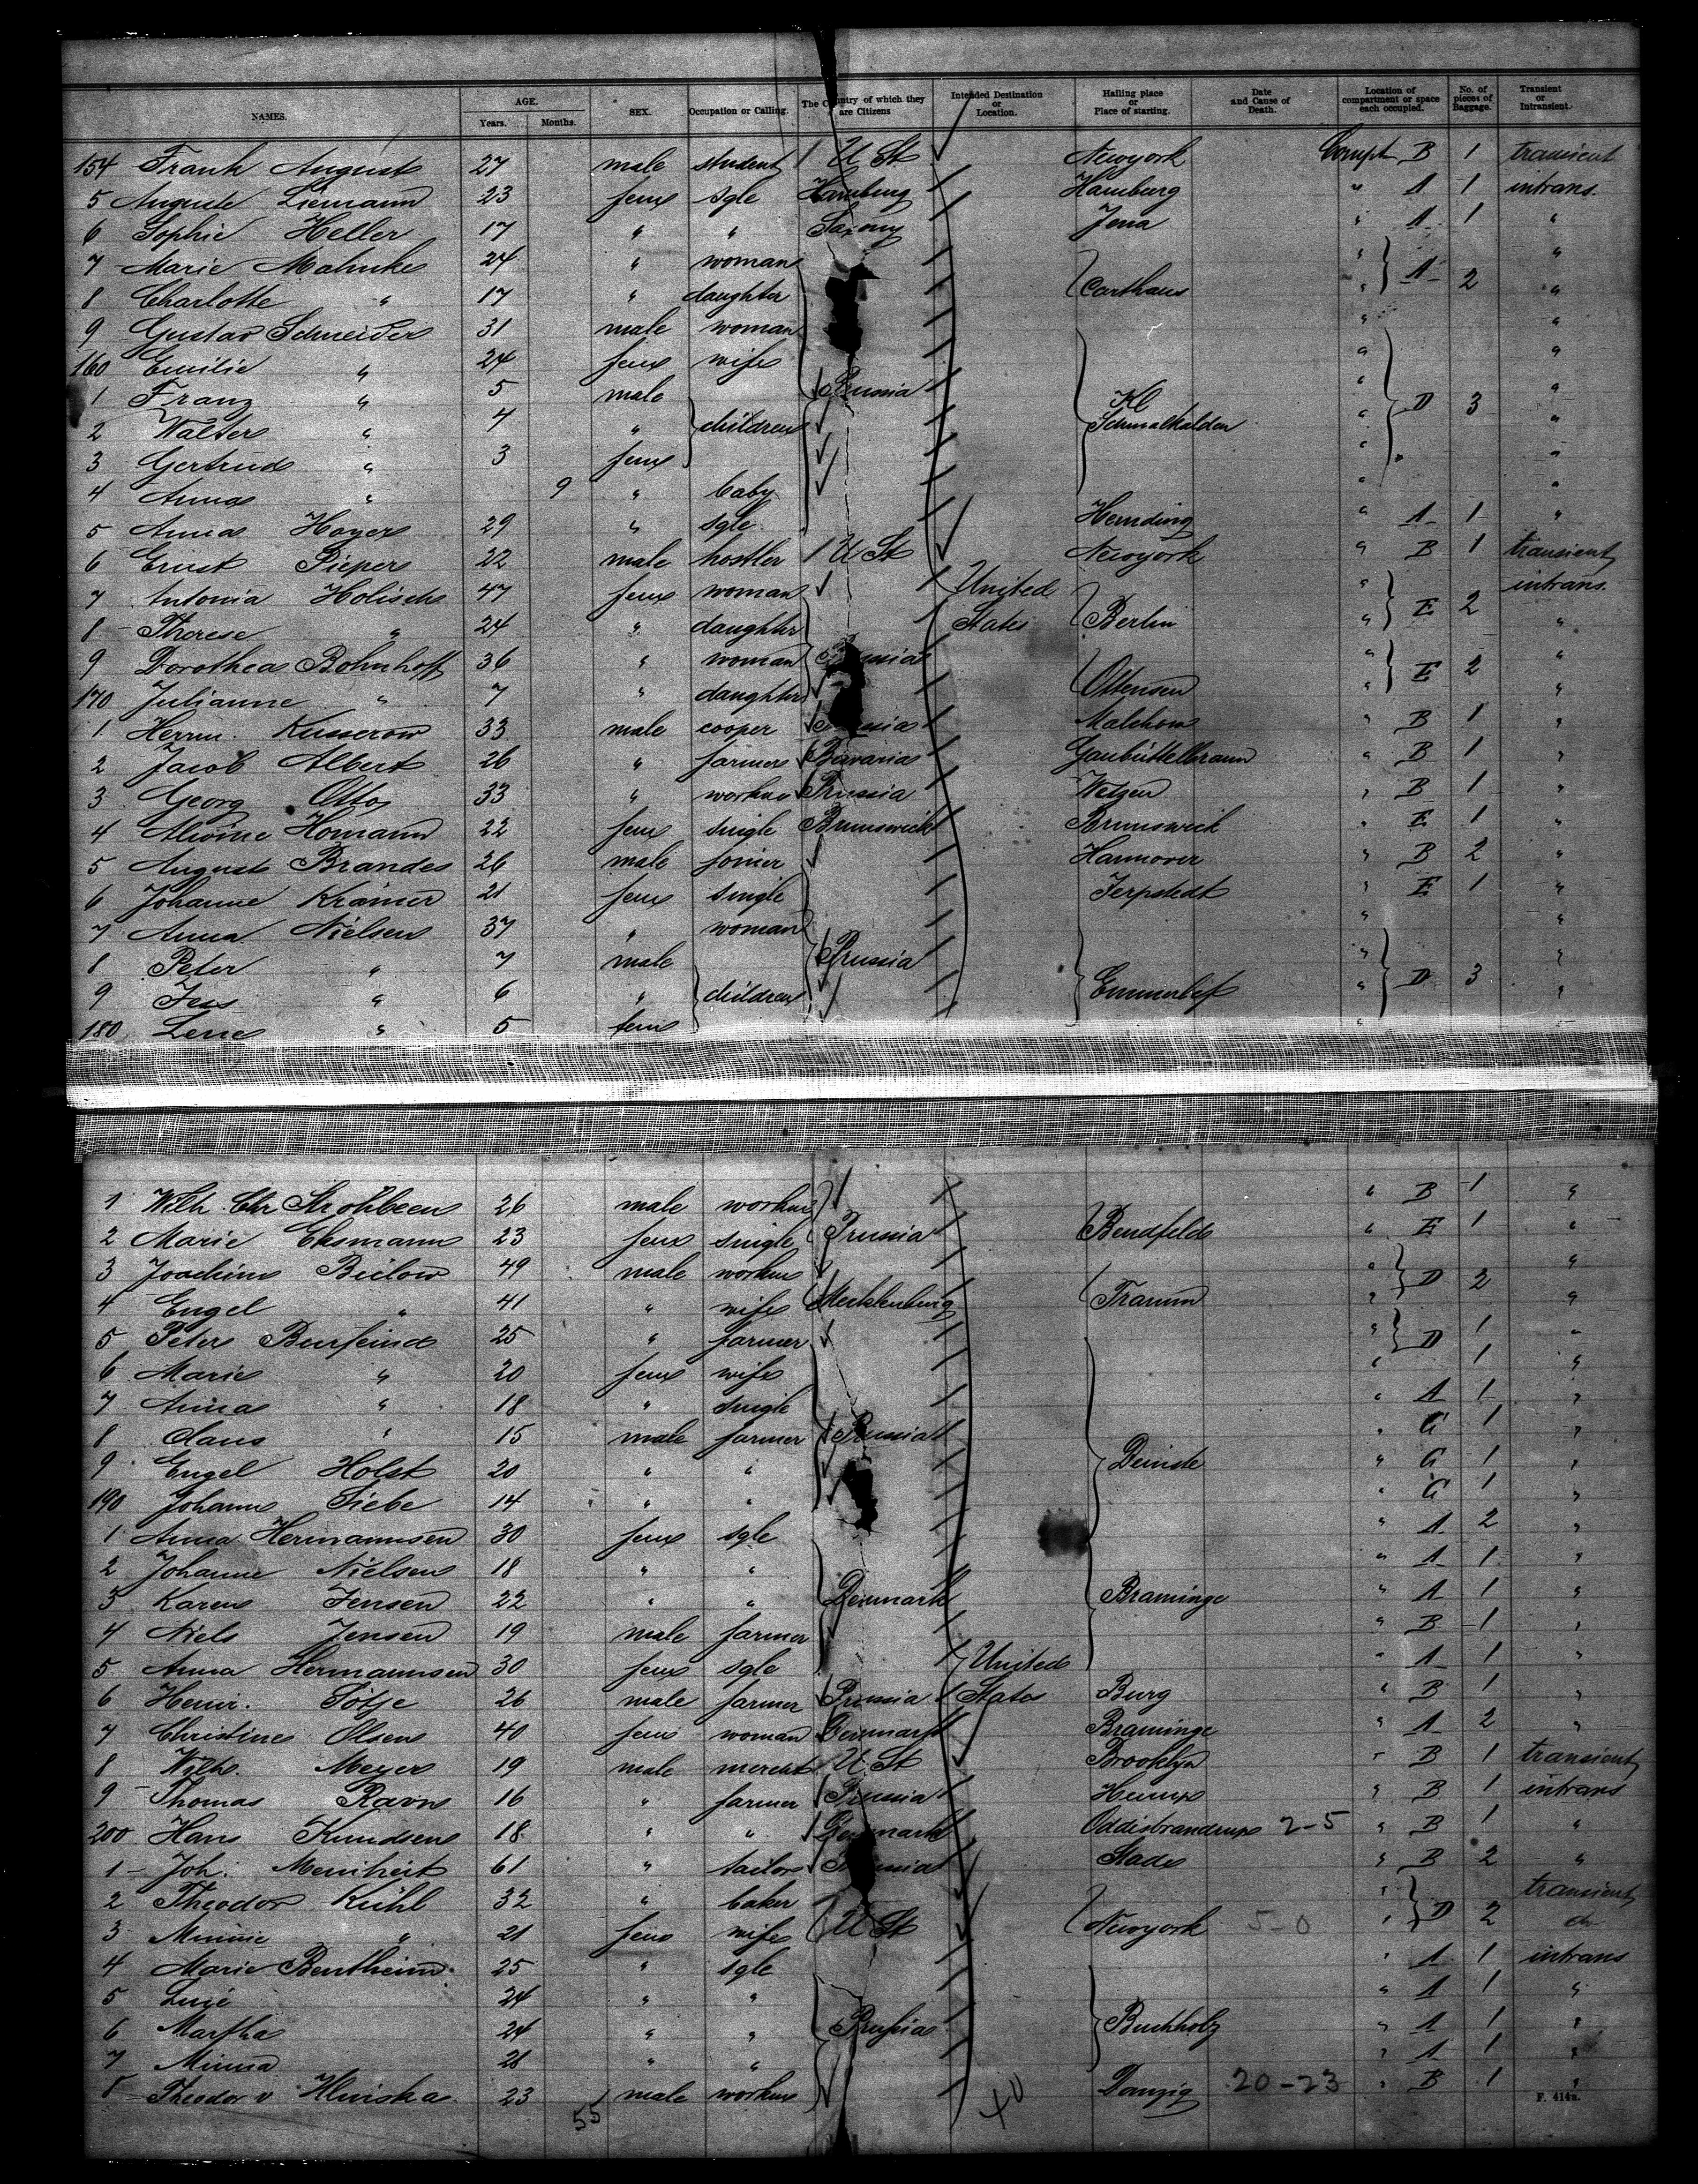 NAMES. AGE. Years. Months. SEX. Occupation or Calling. The Country of which they are Citizens Intended Destination or Location. Hailing place or Place of starting. Date and Cause of Death. Location of compartment or space each occupied. No. of pieces of Baggage. Transient or Intransient.
154 Frank August 27 male student U St Newyork Compt B 1 transient
5 Auguste Liemann 23 fem sgle Hamburg Hamburg " A 1 intrans.
6 Sophie Heller 17 " " Saxony Jena " A 1 "
7 Marie Mahnke 24 " woman " "
8 Charlotte " 17 " daughter Carthaus " A 2 "
9 Gustav Schneider 31 male woman " "
160 Emilie " 24 fem wife " "
1 Franz " 5 male Prussia " "
2 Walter " 4 " children Kl Schmalkalden " D 3 "
3 Gertrud " 3 fem " "
4 Anna " 9 " baby " "
5 Anna Hoyer 29 " sgle. Hemding " A 1 "
6 Ernst Pieper 22 male hostler U St Newyork " B 1 transient
7 Antonia Holisch 47 fem woman United " intrans.
8 Therese " 24 " daughter States Berlin " E 2 "
9 Dorothea Bohnhoff 36 " woman Prussia " "
170 Julianne " 7 " daughter Ottensen " E 2 "
1 Herm. Kusserow 33 male cooper Malchow " B 1 "
2 Jacob Albert 26 " farmer Bavaria Gaubüttelbraun " B 1 "
3 Georg Otto 33 " workm Prussia Wetzen " B 1 "
4 Alwine Homann 22 fem single Brunswick Brunswick " E 1 "
5 August Brandes 26 male joiner Hannover " B 2 "
6 Johanne Krämer 21 fem single Jerpstedt " E 1 "
7 Anna Nielsen 37 " woman " "
8 Peter " 7 male Prussia " "
9 Jess " 6 " children Emmerlef " D 3 "
180 Lene " 5 fem
1 Wilh. Chr Strohbeen 26 male workm " B 1 "
2 Marie Ehsmann 23 fem single Prussia Bendfeld " E 1 "
3 Joachim Bülow 49 male workm " D 2 "
4 Engel " 41 " wife Mecklenburg Tramm " "
5 Peter Burfeind 25 " farmer " D 1 "
6 Marie " 20 fem wife " 1 "
7 Anna " 18 " single " A 1 "
8 Claus " 15 male farmer Prussia " G 1 "
9 Engel Holst 20 " " Deinste " G 1 "
190 Johann Siebe 14 " " " G 1 "
1 Anna Hermannsen 30 fem sgle " A 2 "
2 Johanne Nielsen 18 " " " A 1 "
3 Karen Jensen 22 " " Denmark Braminge " A 1 "
4 Niels Jensen 19 male farmer " B 1 "
5 Anna Hermannsen 30 fem sgle United " A 1 "
6 Heinr. Sötje 26 male farmer Prussia States Burg " B 1 "
7 Christine Olsen 40 fem woman Denmark Braminge " A 2 "
8 Wilh. Meyer 19 male mercht U. St Brooklyn " B 1 transient
9 Thomas Ravn 16 " farmer Prussia " B 1 intrans
200 Hans Knudsen 18 " " Denmark 2-5 " B 1 "
1 Joh. 61 " tailor Prussia Stade " B 2 "
2 Theodor Kühl 32 " baker " transient
3 Minnie " 21 fem wife U St Newyork 5-0 " D 2 do
4 Marie Bentheim 25 " sgle " A 1 intrans
5 24 " " " A 1 "
6 Martha 24 " " Prussia Buchholz " A 1 "
7 Minna 28 " " " A 1 "
8 Theodor v 23 male workm Danzig 20-23 " B 1 "
55 F. 414a.